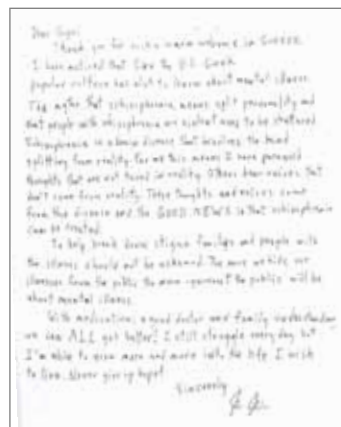 Dear
Thank you for such a warm welcome in Greece.
I have noticed that like the U.S. Greek
popular culture has alot to learn about mental illness.
The myths that schizophrenia means split personality and
that people with schizophrenia are violent need to be shattered.
Schizophrenia is a brain disease that involves the mind
splitting from reality. For me this means I have paranoid
thoughts that are not based in reality. Others hear voices that
don't come from reality. These thoughts and voices come
from the disease and the GOOD NEWS is that schizophrenia
can be treated.
To help break down stigma families and people with
the illness should not be ashamed. The more we hide our
illnesses from the public the more ignorant the public will be
about mental illness.
With medication, a good doctor and family understanding
we can ALL get better! I still struggle every day but
I'm able to grow more and more into the life I wish
to live. Never give up hope!
Sincerely